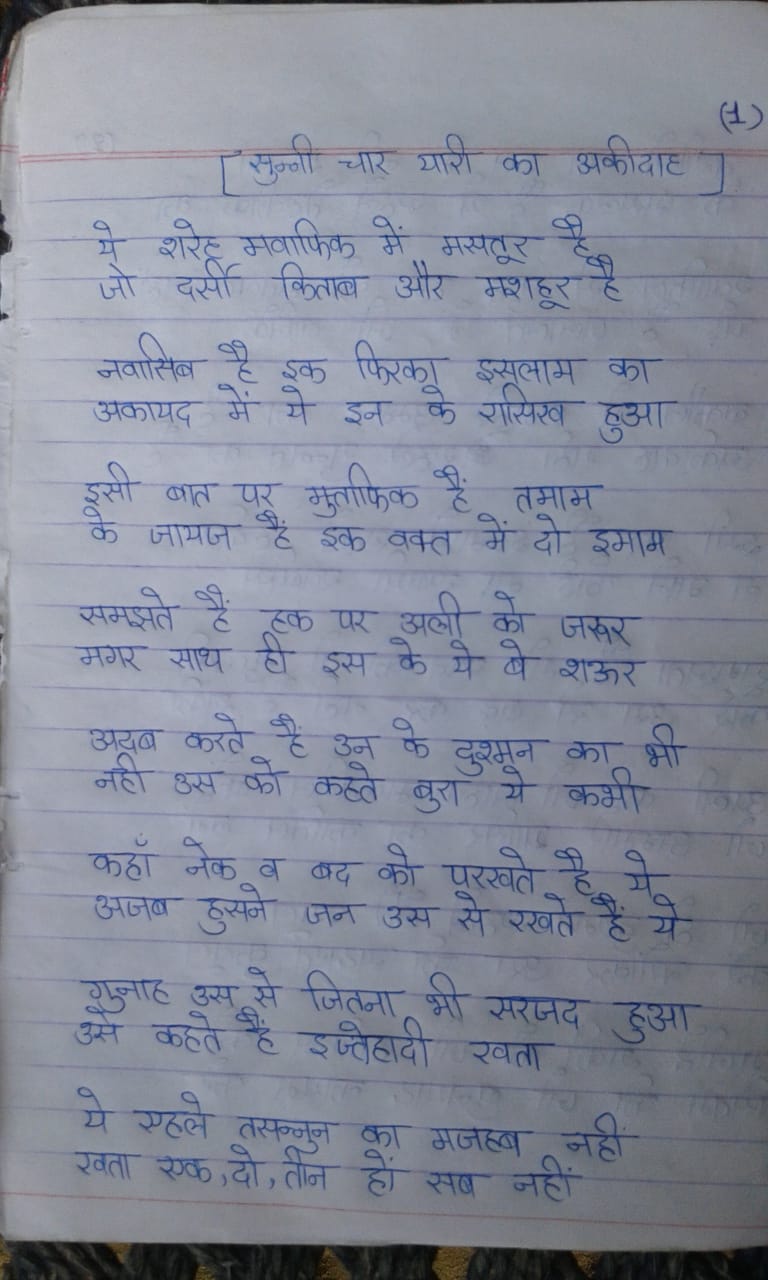 (1)
[ सुन्नी चार यारी का अकीदाह ]
ये शरेह मवाफिक में मसतूर है
जो दर्सी किताब और मशहूर है
नवासिब है इक फिरका इसलाम का
अकायद में ये इन के रासिख हुआ
इसी बात पर मुताफिक हैं तमाम
के जायज हैं इक वक्त में दो इमाम
समझते हैं हक पर अली को जरूर
मगर साथ ही इस के ये बे शऊर
अदब करते हैं उन के दुश्मन का भी
नही उस को कहते बुरा ये कभी
कहाँ नेक व बद को परखते है ये
अजब हुसने जन उस से रखते हैं ये
गुनाह उस से जितना भी सरजद हुआ
उसे कहते हैं इज्तेहादी खता
ये एहले तसन्नुन का मजहब नहीं
खता एक, दो, तीन हों सब नहीं